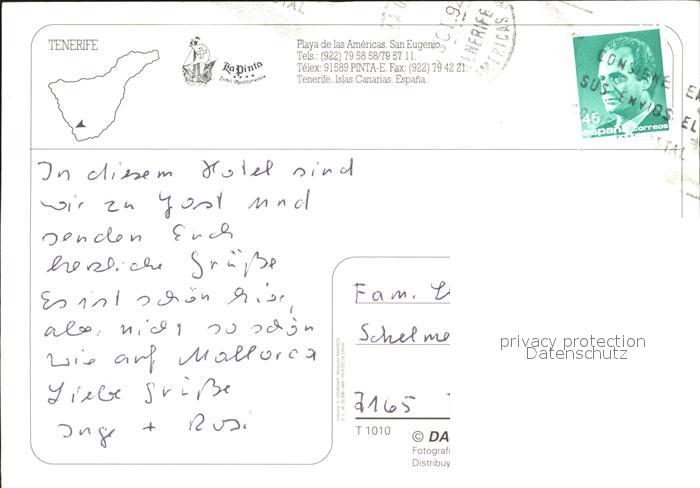 TENERIFE
La Pinta
Playa de las Américas. San Eugenio.
Tels.: (922) 79 58 58/79 57 11.
Télex: 91589 PINTA-E. Fax: (922) 79 42 21.
Tenerife. Islas Canarias. España.
TENERIFE
CONSIGNE E
SUS ENVIOS EL
STAL
45
españa correos
In diesem Hotel sind
wir zu Gast und
senden Euch
herzliche Grüße
Es ist schön hier,
aber nicht so schön
wie auf Mallorca
Liebe Grüße
Inge + Rosi
Fam.
Schelme
7165
privacy protection
Datenschutz
T 1010
© DA
Fotografi
Distribuy